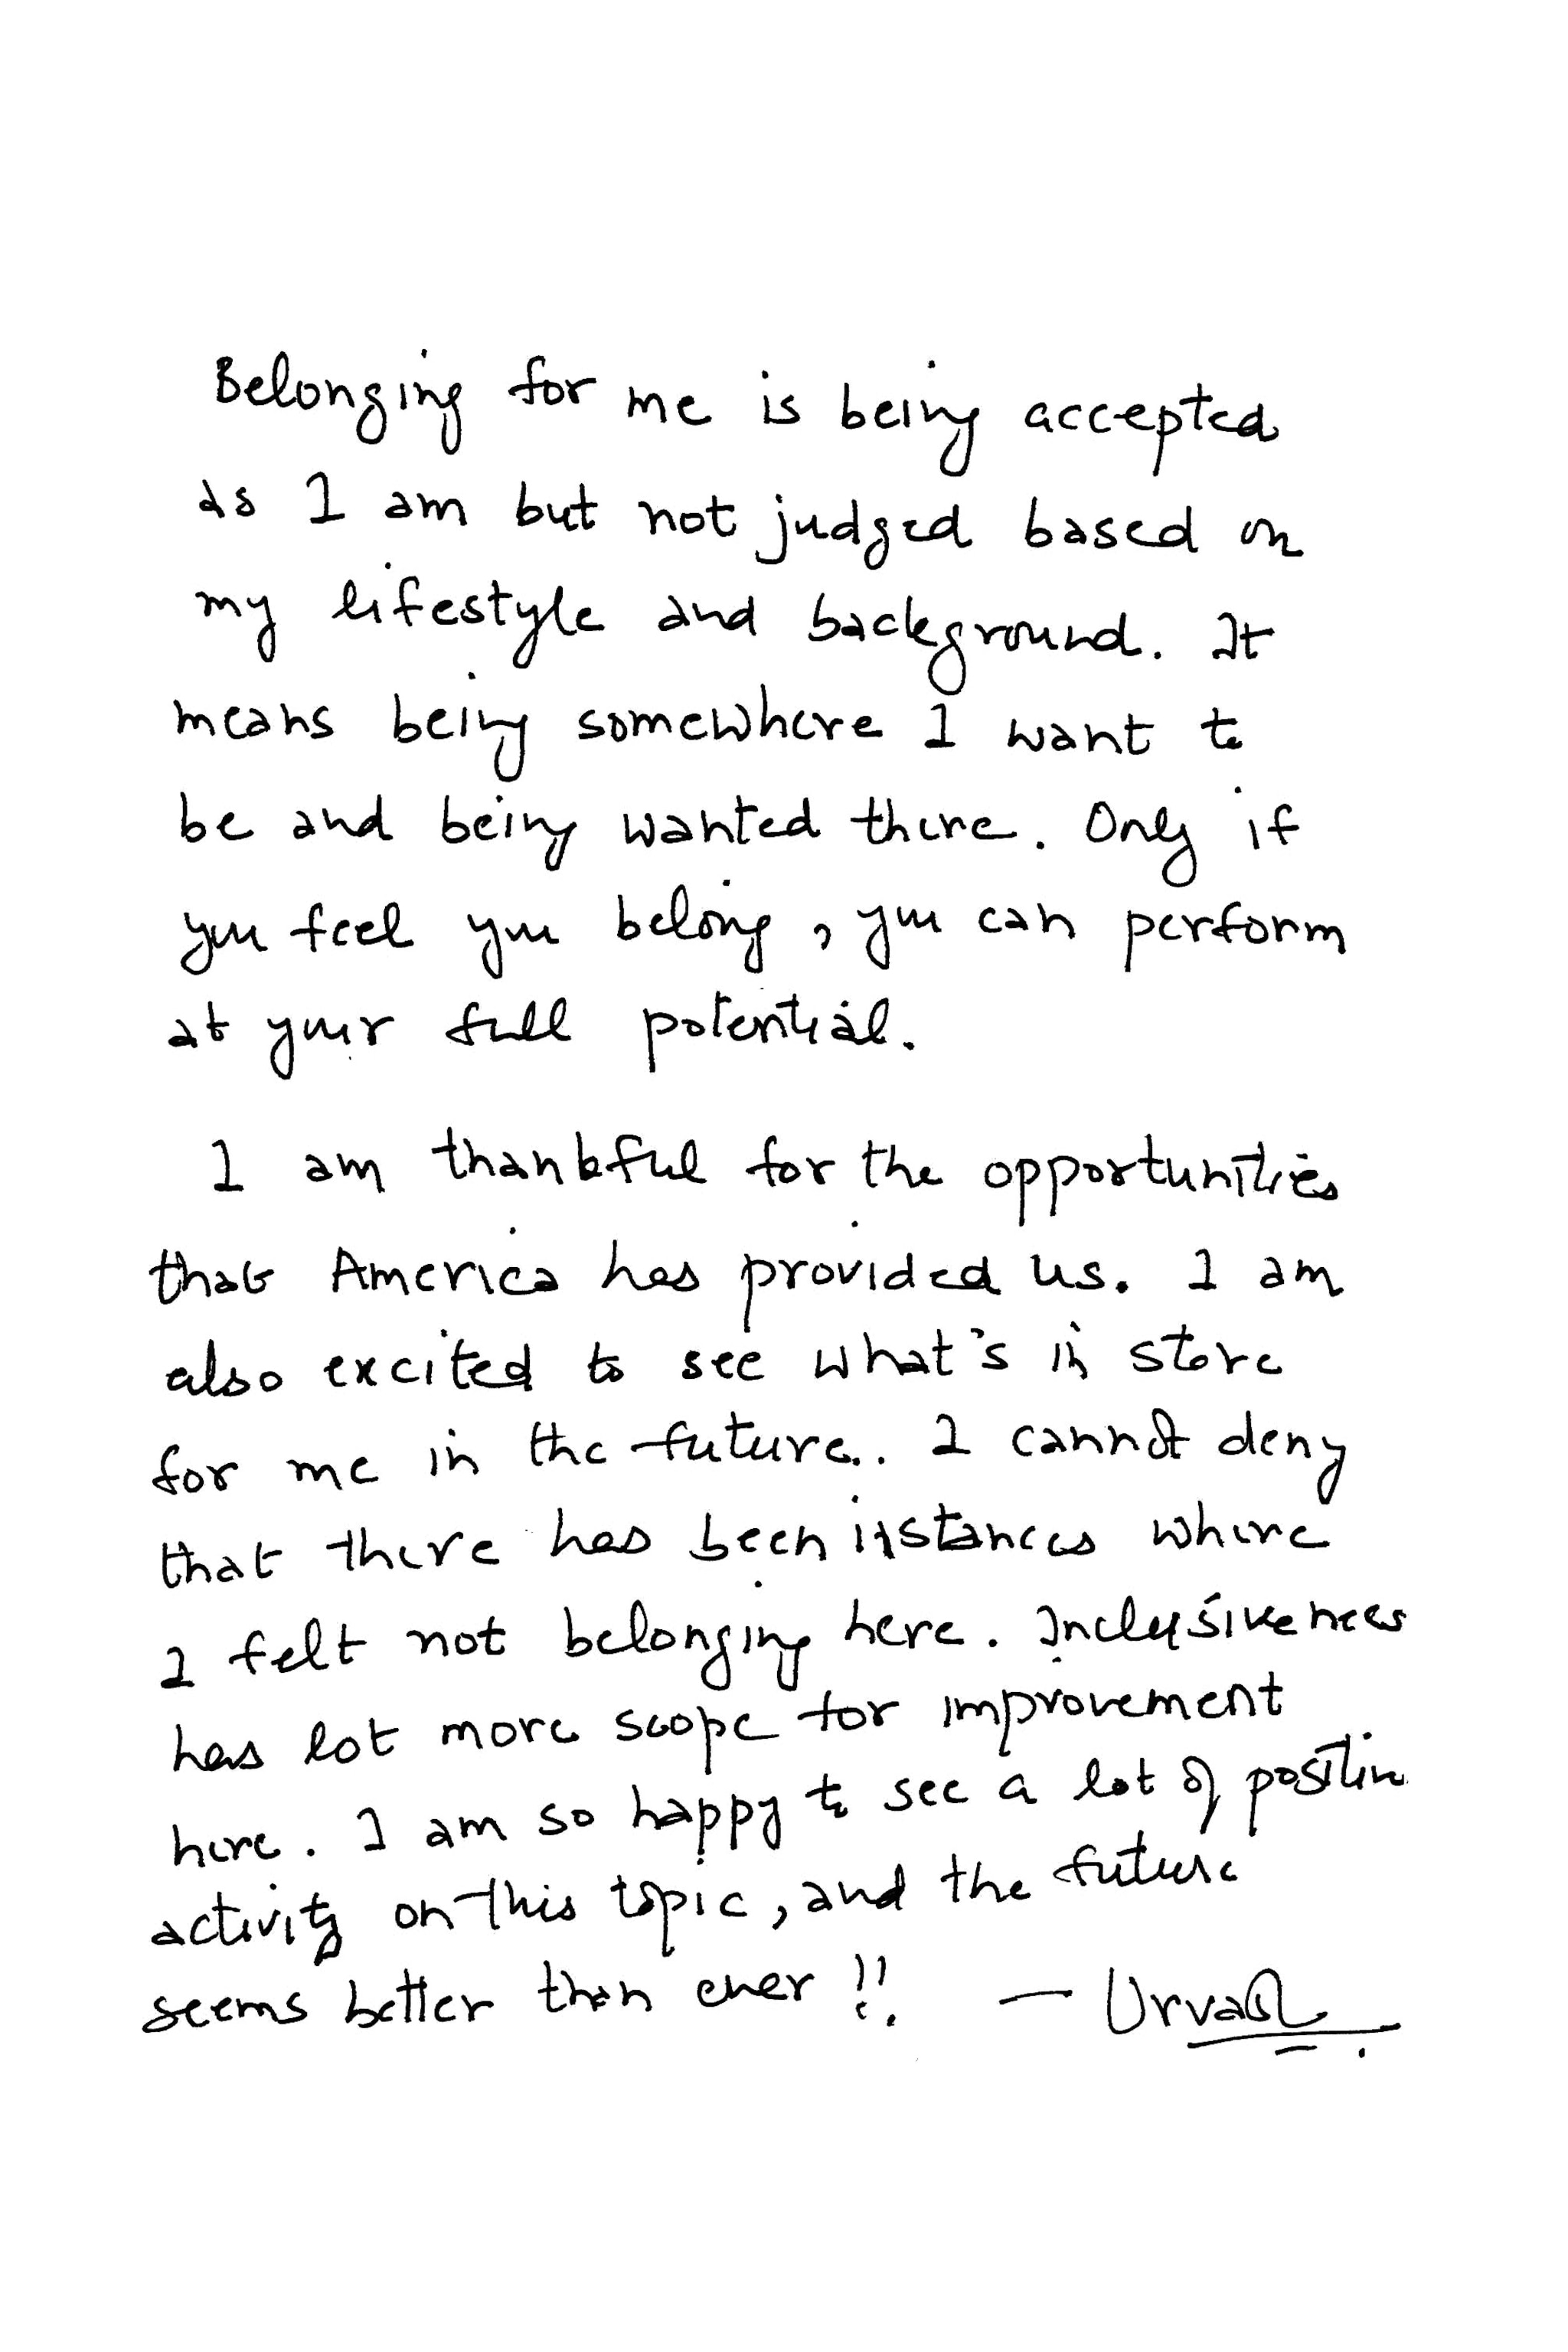 Belonging for me is being accepted
as I am but not judged based on
my lifestyle and background. It
means being somewhere I want to
be and being wanted there. Only if
you feel you belong, you can perform
at your full potential.
I am thankful for the opportunities
that America has provided us. I am
also excited to see what's in store
for me in the future.. I cannot deny
that there has been instances where
I felt not belonging here. Inclusiveness
has lot more scope for improvement
here. I am so happy to see a lot of positive
activity on this topic, and the future
seems better than ever !!. — Urvashi